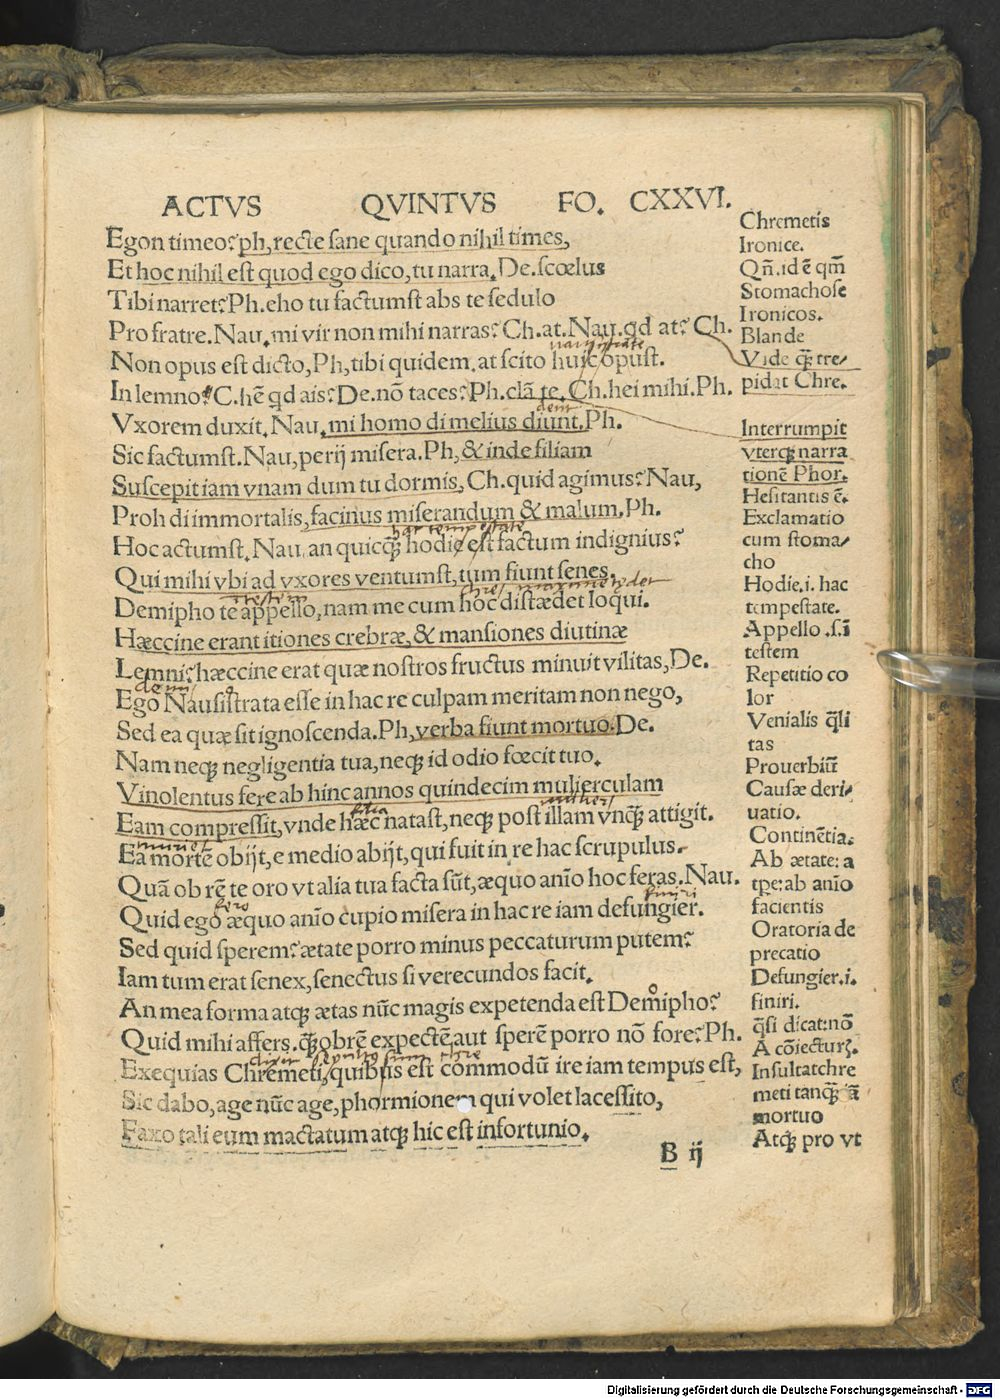 ACTVS QVINTVS FO. CXXVI.
Egon timeo? ph, recte sane quando nihil times,
Et hoc nihil est quod ego dico, tu narra. De. scœlus
Tibi narret? Ph. eho tu factumst abs te sedulo
Pro fratre. Nau. mi vir non mihi narras? Ch. at. Nau. qd at? Ch.
Non opus est dicto, Ph, tibi quidem. at scito huic opust.
In lemno? C. hē qd ais? De. nō taces? Ph. clā te. Ch. hei mihi. Ph.
Vxorem duxit. Nau. mi homo di melius diunt. Ph.
Sic factumst. Nau, perij misera. Ph, & inde filiam
Suscepit iam vnam dum tu dormis, Ch. quid agimus? Nau,
Proh di immortalis, facinus miserandum & malum. Ph.
Hoc actumst. Nau. an quicq̃ hodie est factum indignius?
Qui mihi vbi ad vxores ventumst, tum fiunt senes.
Demipho te appello, nam me cum hoc distædet loqui.
Hæccine erant itiones crebræ, & mansiones diutinæ
Lemni? hæccine erat quæ nostros fructus minuit vilitas, De.
Ego Nausistrata esse in hac re culpam meritam non nego,
Sed ea quæ sit ignoscenda. Ph, verba fiunt mortuo. De.
Nam neqꝫ negligentia tua, neqꝫ id odio fœcit tuo.
Vinolentus fere ab hinc annos quindecim mulierculam
Eam compressit, vnde hæc natast, neqꝫ post illam vnq̃ attigit.
Ea morte obijt, e medio abijt, qui fuit in re hac scrupulus.
Quā ob rē te oro vt alia tua facta sūt, æquo anīo hoc feras. Nau.
Quid ego æquo anīo cupio misera in hac re iam defungier.
Sed quid sperem? ætate porro minus peccaturum putem?
Iam tum erat senex, senectus si verecundos facit.
An mea forma atqꝫ ætas nūc magis expetenda est Demipho?
Quid mihi affers. q̃obrē expectē, aut sperē porro nō fore? Ph.
Exequias Chremeti, quibus est commodū ire iam tempus est,
Sic dabo, age nūc age, phormionem qui volet lacessito,
Faxo tali eum mactatum atqꝫ hic est infortunio.
B ij
Chremetis
Ironice.
Qñ. id ē qm̄
Stomachose
Ironicos.
Blande
Vide q̃ tre-
pidat Chre.
Interrumpit
vterqꝫ narra
tionē Phor.
Hesitantis ē.
Exclamatio
cum stoma-
cho
Hodie. i. hac
tempestate.
Appello .s. ī
testem
Repetitio co
lor
Venialis q̃li
tas
Prouerbiū
Causæ deri-
uatio.
Continētia.
Ab ætate: a
tpe: ab anīo
facientis
Oratoria de
precatio
Defungier. i.
finiri.
q̃si dicat: nō
A cōiecturꝫ.
Insultat chre
meti tanq̃ iā
mortuo
Atqꝫ pro vt
Digitalisierung gefördert durch die Deutsche Forschungsgemeinschaft - DFG